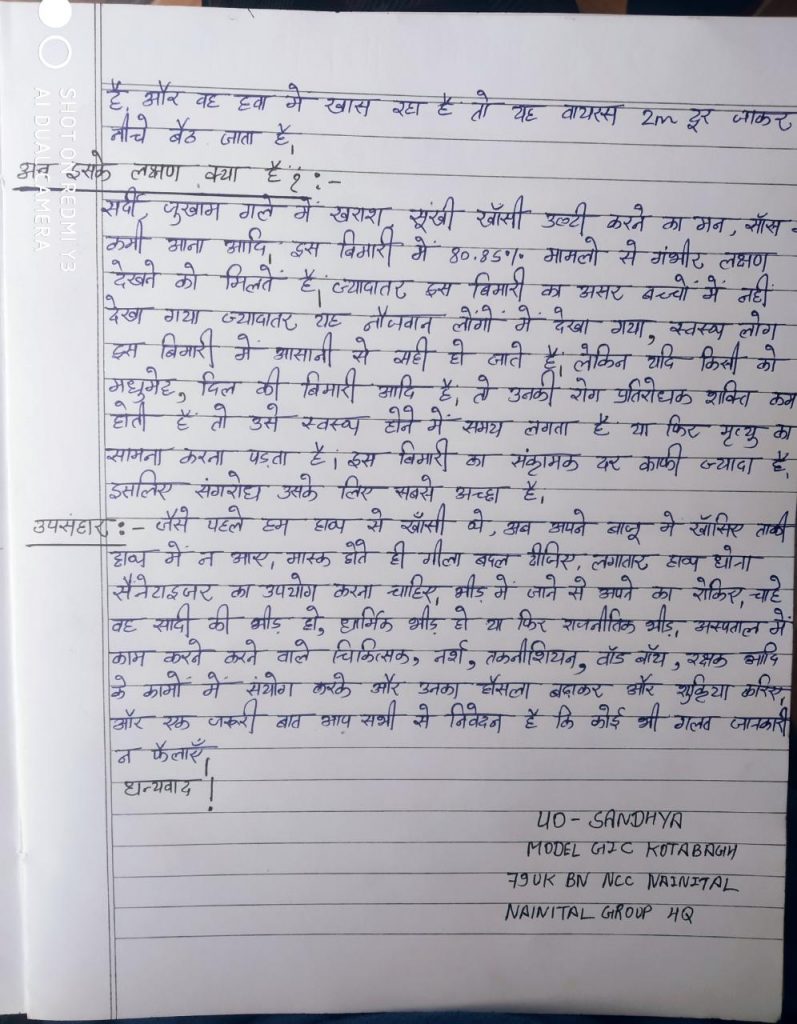 है, और वह हवा मे खास रहा है तो यह वायरस 2m दूर जाकर
नीचे बैठ जाता है,
अब इसके लक्षण क्या है? :-
सर्दी, जुखाम गले में खराश, सूंखी खाँसी उल्टी करने का मन, साँस
कमी आना आदि, इस बिमारी में 80.85% मामलो से गंभीर लक्षण
देखने को मिलतें हैं, ज्यादातर इस बिमारी का असर बच्चों में नहीं
देखा गया ज्यादातर यह नौजवान लोंगों में देखा गया, स्वस्थ लोग
इस बिमारी में आसानी से सही हो जाते हैं, लेकिन यदि किसी को
मधुमेह, दिल की बिमारी आदि है, तो उनकी रोग प्रतिरोधक शक्ति कम
होती है तो उसे स्वस्थ होने में समय लगता है या फिर मृत्यु का
सामना करना पड़ता है, इस बिमारी का संक्रामक दर काफी ज्यादा है,
इसलिए संगरोध उसके लिए सबसे अच्छा है,
उपसंहार :- जैसे पहले हम हाथ से खाँसी थे, अब अपने बाजू मे खाँसिए ताकी
हाथ में न आए, मास्क होते ही गीला बदल दीजिए, लगातार हाथ धोना
सैनेटाइजर का उपयोग करना चाहिए, भीड़ में जाने से अपने का रोकिए, चाहे
वह सादी की भीड़ हो, धार्मिक भीड़ हो या फिर राजनीतिक भीड़, अस्पताल में
काम करने करने वाले चिकित्सक, नर्श, तकनीशियन, वॉड बॉय, रक्षक आदि
के कामों में संयोग करके और उनका हौसला बढाकर और शुक्रिया करिए,
और एक जरूरी बात आप सभी से निवेदन है कि कोई भी गलत जानकारी
न फैलाएँ,
धन्यवाद !
UO - SANDHYA
MODEL GIC KOTABAGH
79 UK BN NCC NAINITAL
NAINITAL GROUP HQ
SHOT ON REDMI Y3
AI DUAL CAMERA